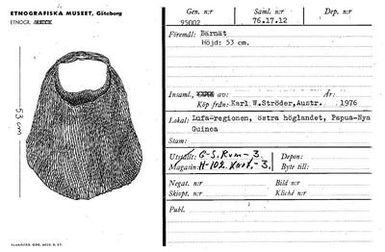 ETNOGRAFISKA MUSEET, Göteborg
ETNOGR.
53 cm
Gen. n:r 95002
Saml. n:r 76.17.12
Dep. n:r
Föremål: Bärnät
Höjd: 53 cm.
Insaml., av:
Köp från: Karl W.Ströder, Austr. 1976
Lokal: Lufa-regionen, östra höglandet, Papua-Nya
Guinea
Stam:
Utställt: G-S. Rum - 3. Depon:
Magasin: H-102. - 3. Byte till:
Negat. n:r Bild n:r
Skiopt. n:r Kliché n:r
Publ.